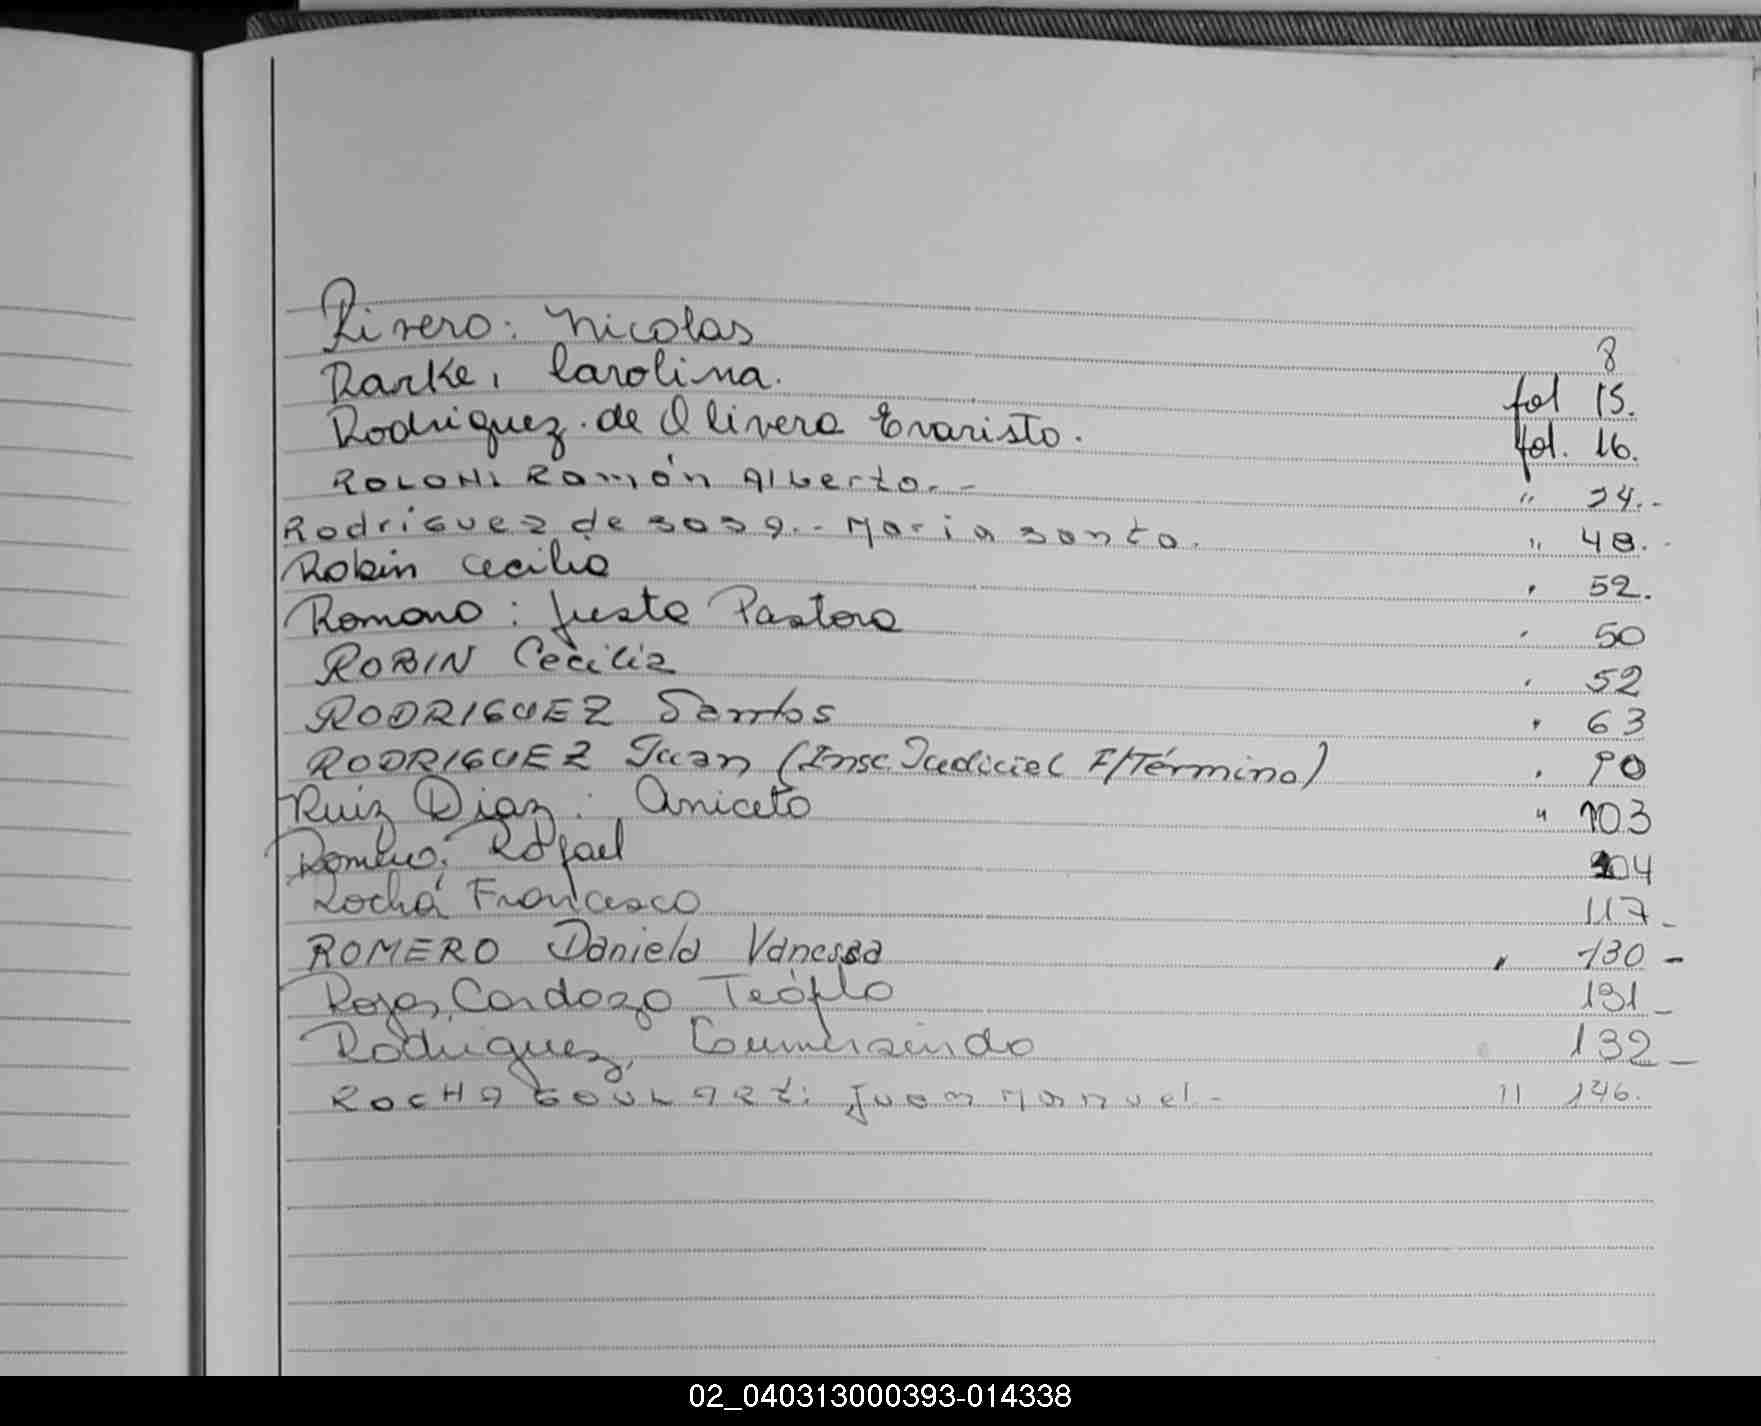 Rivero: Nicolas 8
Rarke, Carolina. fol 15.
Rodriguez. de Olivera Evaristo. fol. 16.
ROLONi Ramón Alberto.- " 24.-
Rodriguez de sosa.- Maria santa. " 48.-
Robin Cecilia " 52.
Romano: Justa Pastora " 50
ROBIN Cecilia " 52
RODRIGUEZ Santos " 63
RODRIGUEZ Juan (Insc. Judicial F/Término) " 90
Ruiz Diaz: Aniceto " 103
Romero: Rafael 104
Rocha Francesco 117-
ROMERO Daniela Vanessa " 130-
Rojas, Cardozo Teófilo 131-
Rodriguez, Gumersindo 132-
ROCHA GOULART: Juan Manuel.- " 146.
02_040313000393-014338